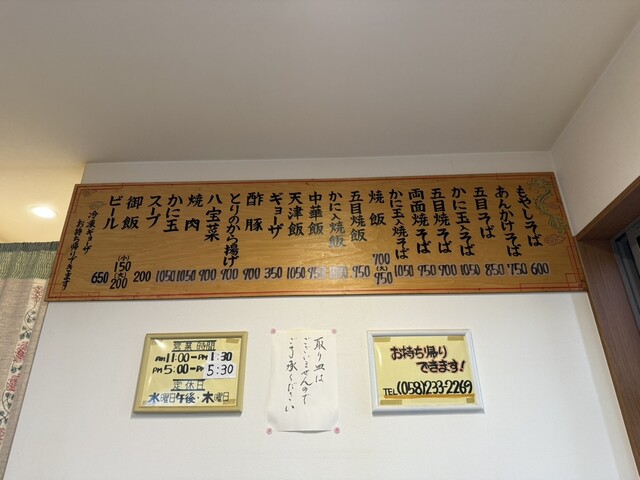 もやしそば 600
あんかけそば 750
五目そば 850
かに玉入そば 1050
五目焼そば 900
両面焼そば 950
かに玉入焼そば 1050
焼飯 700 (大)950
五目焼飯 950
かに入焼飯
中華飯 950
天津飯 1050
ギョーザ 350
酢豚 900
とりのから揚げ 900
八宝菜 900
焼肉 1050
かに玉 1050
スープ 200
御飯 (小)150 (大)200
ビール 650
冷凍ギョーザ
お持ち帰りできます
営業時間
AM 11:00-PM 1:30
PM 5:00-PM 5:30
定休日
水曜日午後・木曜日
取り皿は
ございませんので
ご了承ください
お持ち帰り
できます!
TEL (058)233-2269